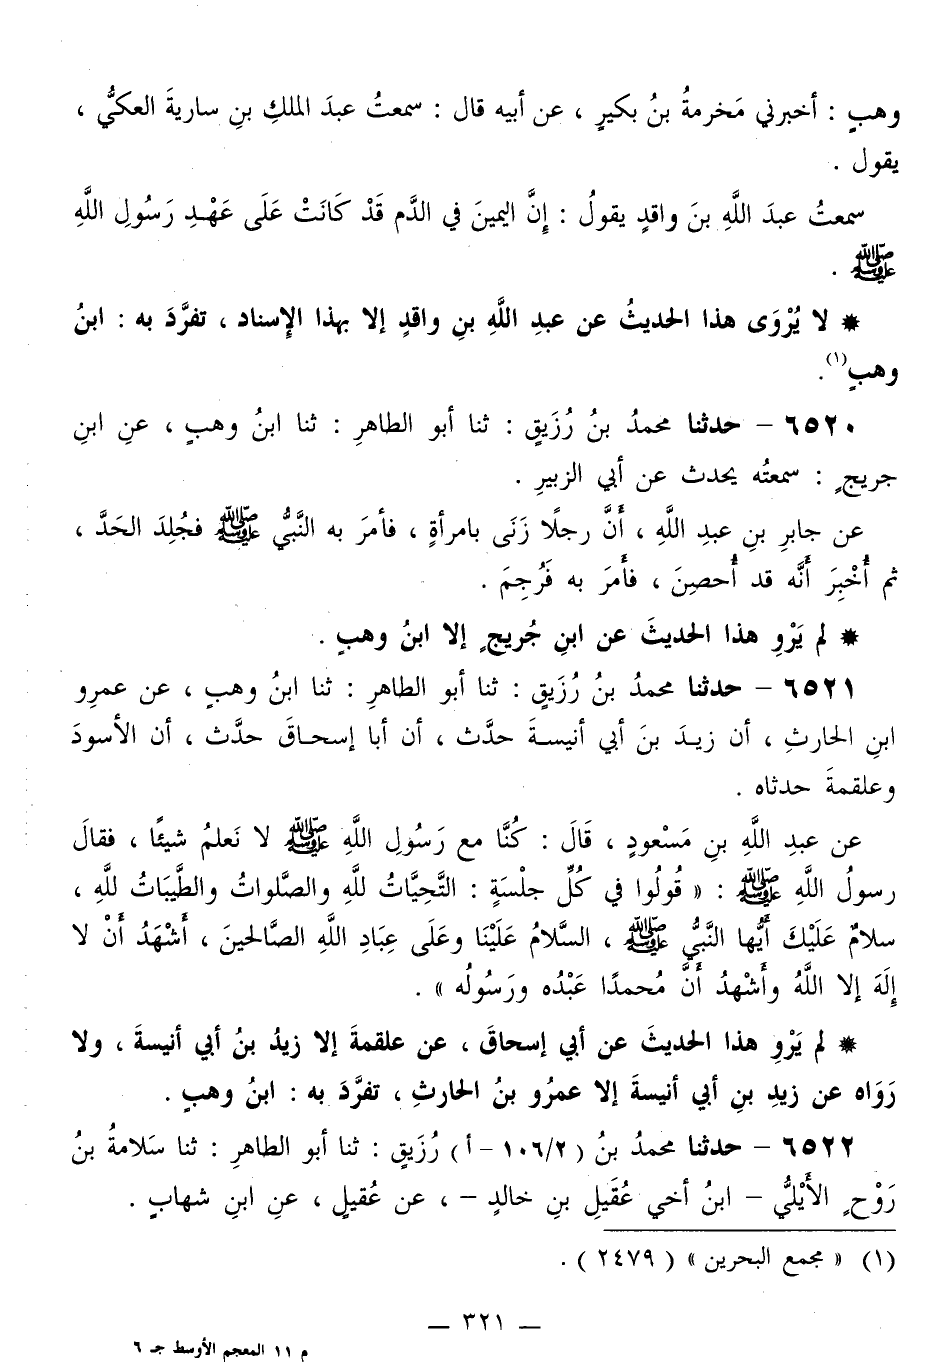 وهبٍ : أخبرني مَخرمةُ بنُ بكيرٍ ، عن أبيه قال : سمعتُ عبدَ الملكِ بنِ ساريةَ العكيُّ ،
يقول .
سمعتُ عبدَ اللَّهِ بنَ واقدٍ يقولُ : إِنَّ اليمينَ في الدَّم قَدْ كَانَتْ عَلَى عَهْـدِ رَسُولِ اللَّهِ
ﷺ .
* لا يُرْوَى هذا الحديثُ عن عبدِ اللَّهِ بنِ واقدٍ إلا بهذا الإسناد ، تفرَّدَ به : ابنُ
وهبٍ(١).
٦٥٢٠ - حدثنا محمدُ بنُ رُزَيقٍ : ثنا أبو الطاهرِ : ثنا ابنُ وهبٍ ، عنِ ابنِ
جريجٍ : سمعتُه يحدث عن أبي الزبيرِ .
عن جابرِ بنِ عبدِ اللَّهِ ، أَنَّ رجلًا زَنَى بامرأةٍ ، فأمرَ به النَّبيُّ ﷺ فجُلِدَ الحَدَّ ،
ثم أُخْبِرَ أَنَّه قد أُحصِنَ ، فأَمرَ به فَرُجِمَ .
* لم يَرْوِ هذا الحديثَ عن ابنِ جُريجٍ إلا ابنُ وهبٍ .
٦٥٢١ - حدثنا محمدُ بنُ رُزَيقٍ : ثنا أبو الطاهرِ : ثنا ابنُ وهبٍ ، عن عمرِو
ابنِ الحارثِ ، أن زيـدَ بنَ أبي أنيسـةَ حدَّث ، أن أبا إسحـاقَ حدَّث ، أن الأسودَ
وعلقمةَ حدثاه .
عن عبدِ اللَّهِ بنِ مَسْعودٍ ، قَالَ : كُنَّا مع رَسُولِ اللَّهِ ﷺ لا نَعلمُ شيئًا ، فقالَ
رسولُ اللَّهِ ﷺ : « قُولُوا في كُلِّ جلْسَةٍ : التَّحِيَّاتُ للَّهِ والصَّلواتُ والطَّيبَاتُ للَّهِ ،
سلامٌ عَلَيْكَ أَيُّها النَّبيُّ ﷺ ، السَّلامُ عَلَيْنَا وعَلَى عِبَادِ اللَّهِ الصَّالحينَ ، أَشْهَدُ أَنْ لا
إِلَهَ إلا اللَّهُ وأَشْهدُ أَنَّ مُحمدًا عَبْدُه ورَسُولُه » .
* لم يَرْوِ هذا الحديثَ عن أبي إسحاقَ ، عن علقمةَ إلا زيدُ بنُ أبي أنيسةَ ، ولا
رَوَاه عن زيدِ بنِ أبي أنيسةَ إلا عمرُو بنُ الحارثِ ، تفرَّدَ به : ابنُ وهبٍ .
٦٥٢٢ - حدثنا محمدُ بنُ ( ١٠٦/٢ - أ ) رُزَيقٍ : ثنا أبو الطاهرِ : ثنا سَلامةُ بنُ
رَوْحٍ الأَيْليُّ - ابنُ أخي عُقَيلِ بنِ خالدٍ - ، عن عُقيلٍ ، عنِ ابنِ شهابٍ .
(١) « مجمع البحرين » ( ٢٤٧٩ ) .
— ٣٢١ —
م ١١ المعجم الأوسط جـ ٦